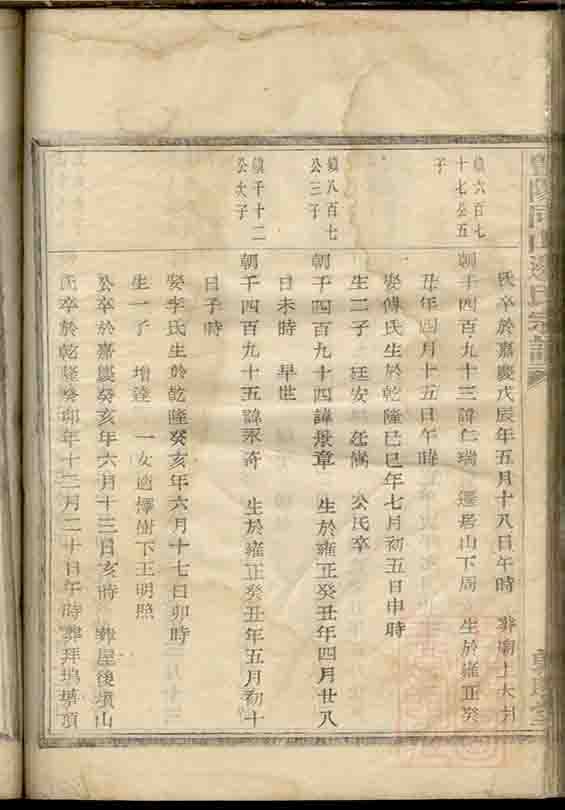 氏卒於嘉慶戊辰年五月十八日午時 葬廟上大
鎮六百七十七公五子
朝千四百九十三諱仁瑞 遷居山下周 生於雍正癸
丑年四月十五日午時
娶傅氏生於乾隆己巳年七月初五日申時
生二子 廷安 廷 公氏卒
鎮八百七公三子
朝千四百九十四諱景章 生於雍正癸丑年四月廿八
日未時 早世
鎮千十二公次子
朝千四百九十五諱 生於雍正癸丑年五月初十
日子時
娶李氏生於乾隆癸亥年六月十七日卯時
生一子 增達 一女適澤樹下王明照
公卒於嘉慶癸亥年六月十三日亥時 葬屋後墳山
氏卒於乾隆癸卯年十二月二十日午時 葬拜塢塘頂